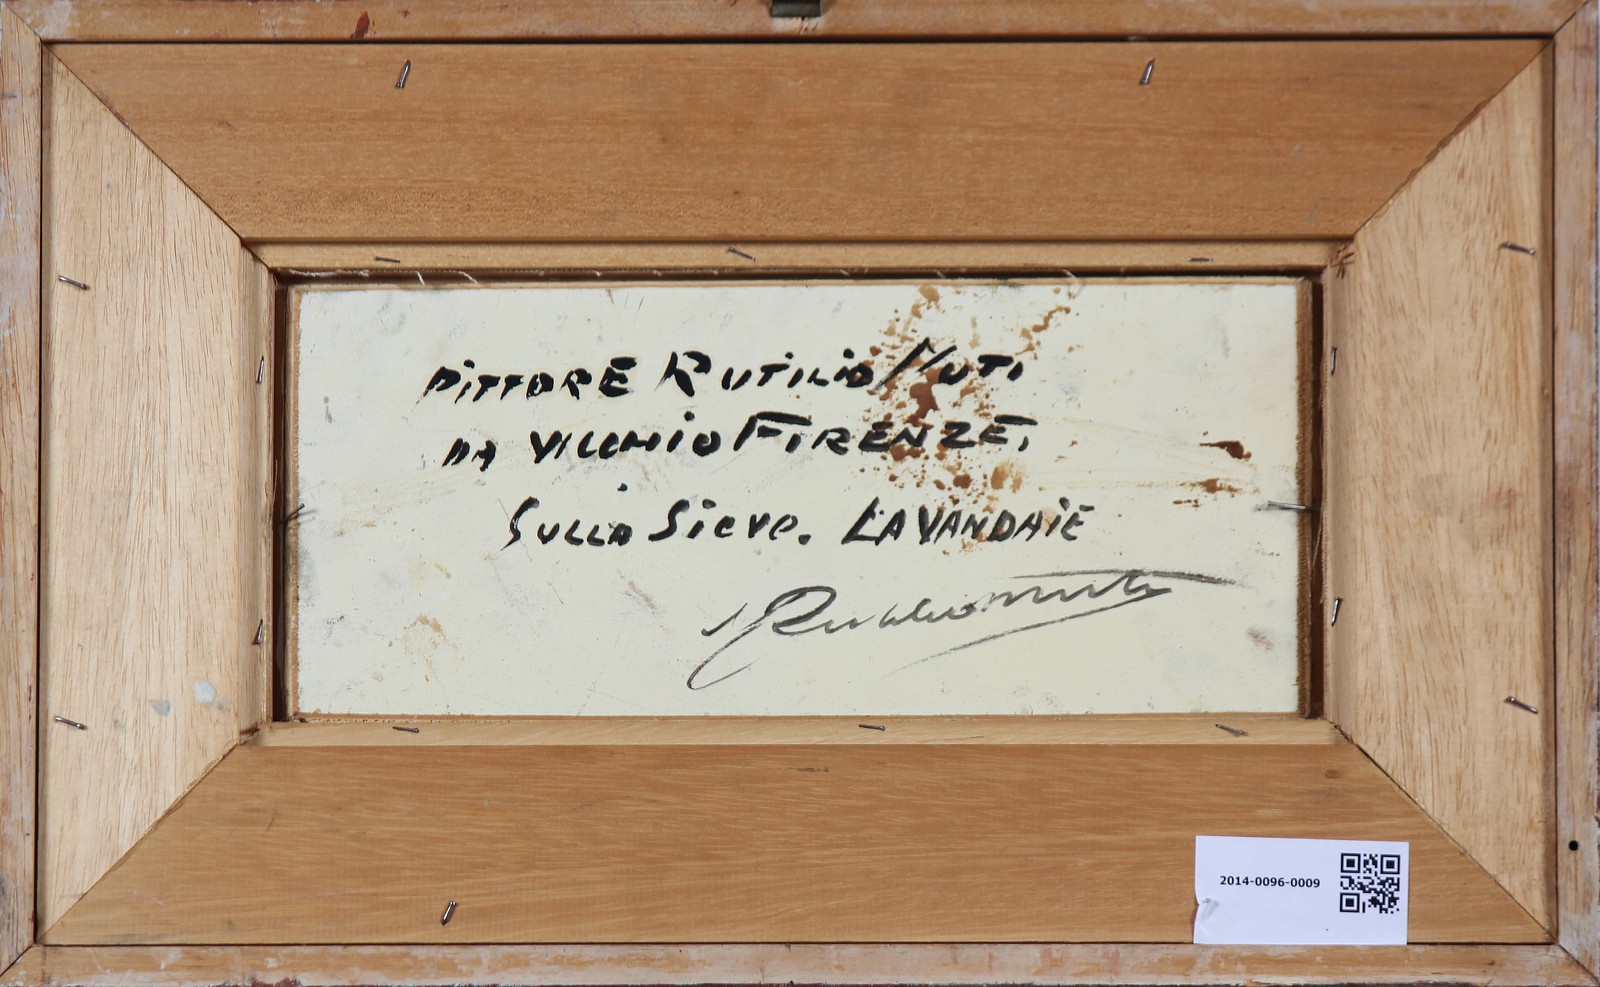 PiTTORE RUTiLiO MUTi
DA ViCCHiO FiRENZE.
SULLA Sieve. LAVANDAiE
Rutilio Muti
2014-0096-0009